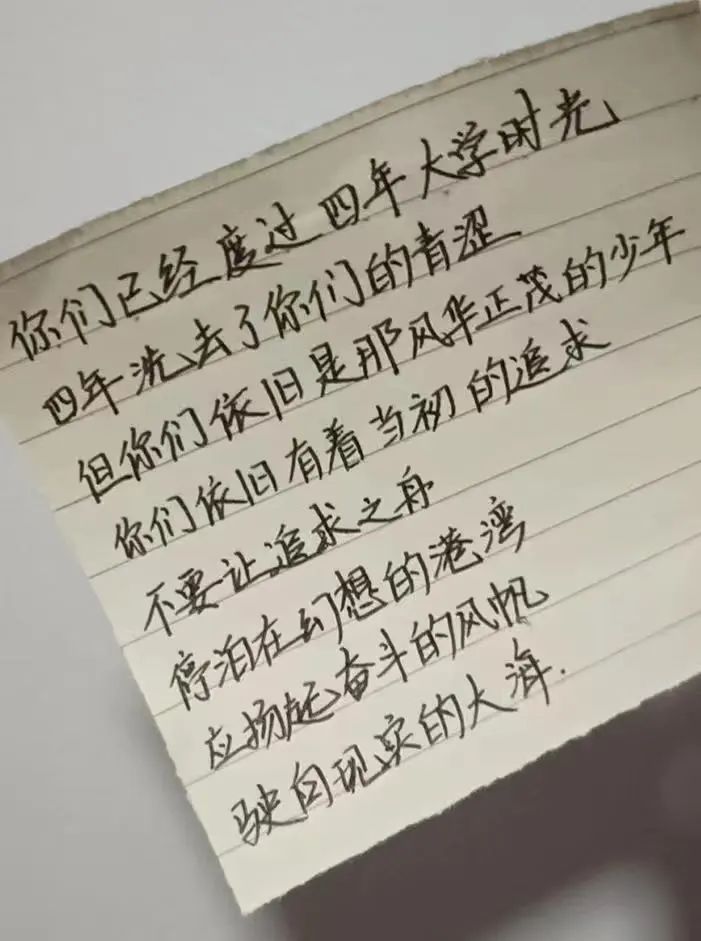 你们已经度过四年大学时光
四年洗去了你们的青涩
但你们依旧是那风华正茂的少年
你们依旧有着当初的追求
不要让追求之舟
停泊在幻想的港湾
应扬起奋斗的风帆
驶向现实的大海.